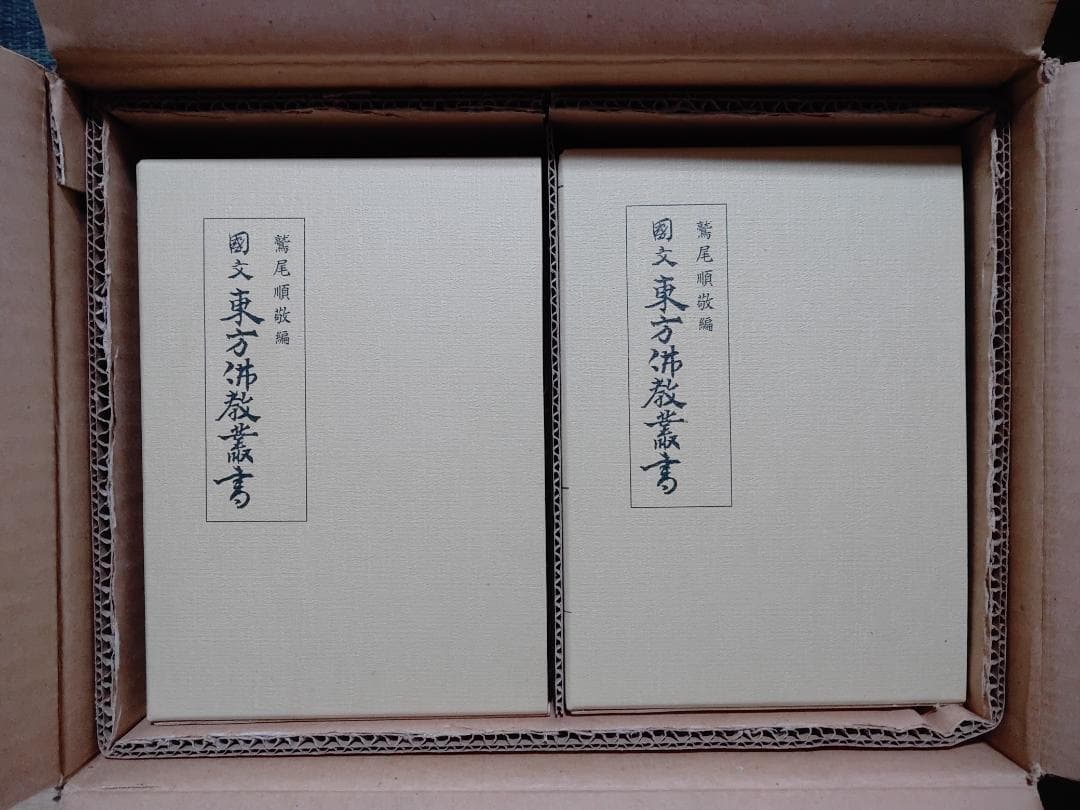 鷲尾順敬編
國文東方佛教叢書
鷲尾順敬編
國文東方佛教叢書